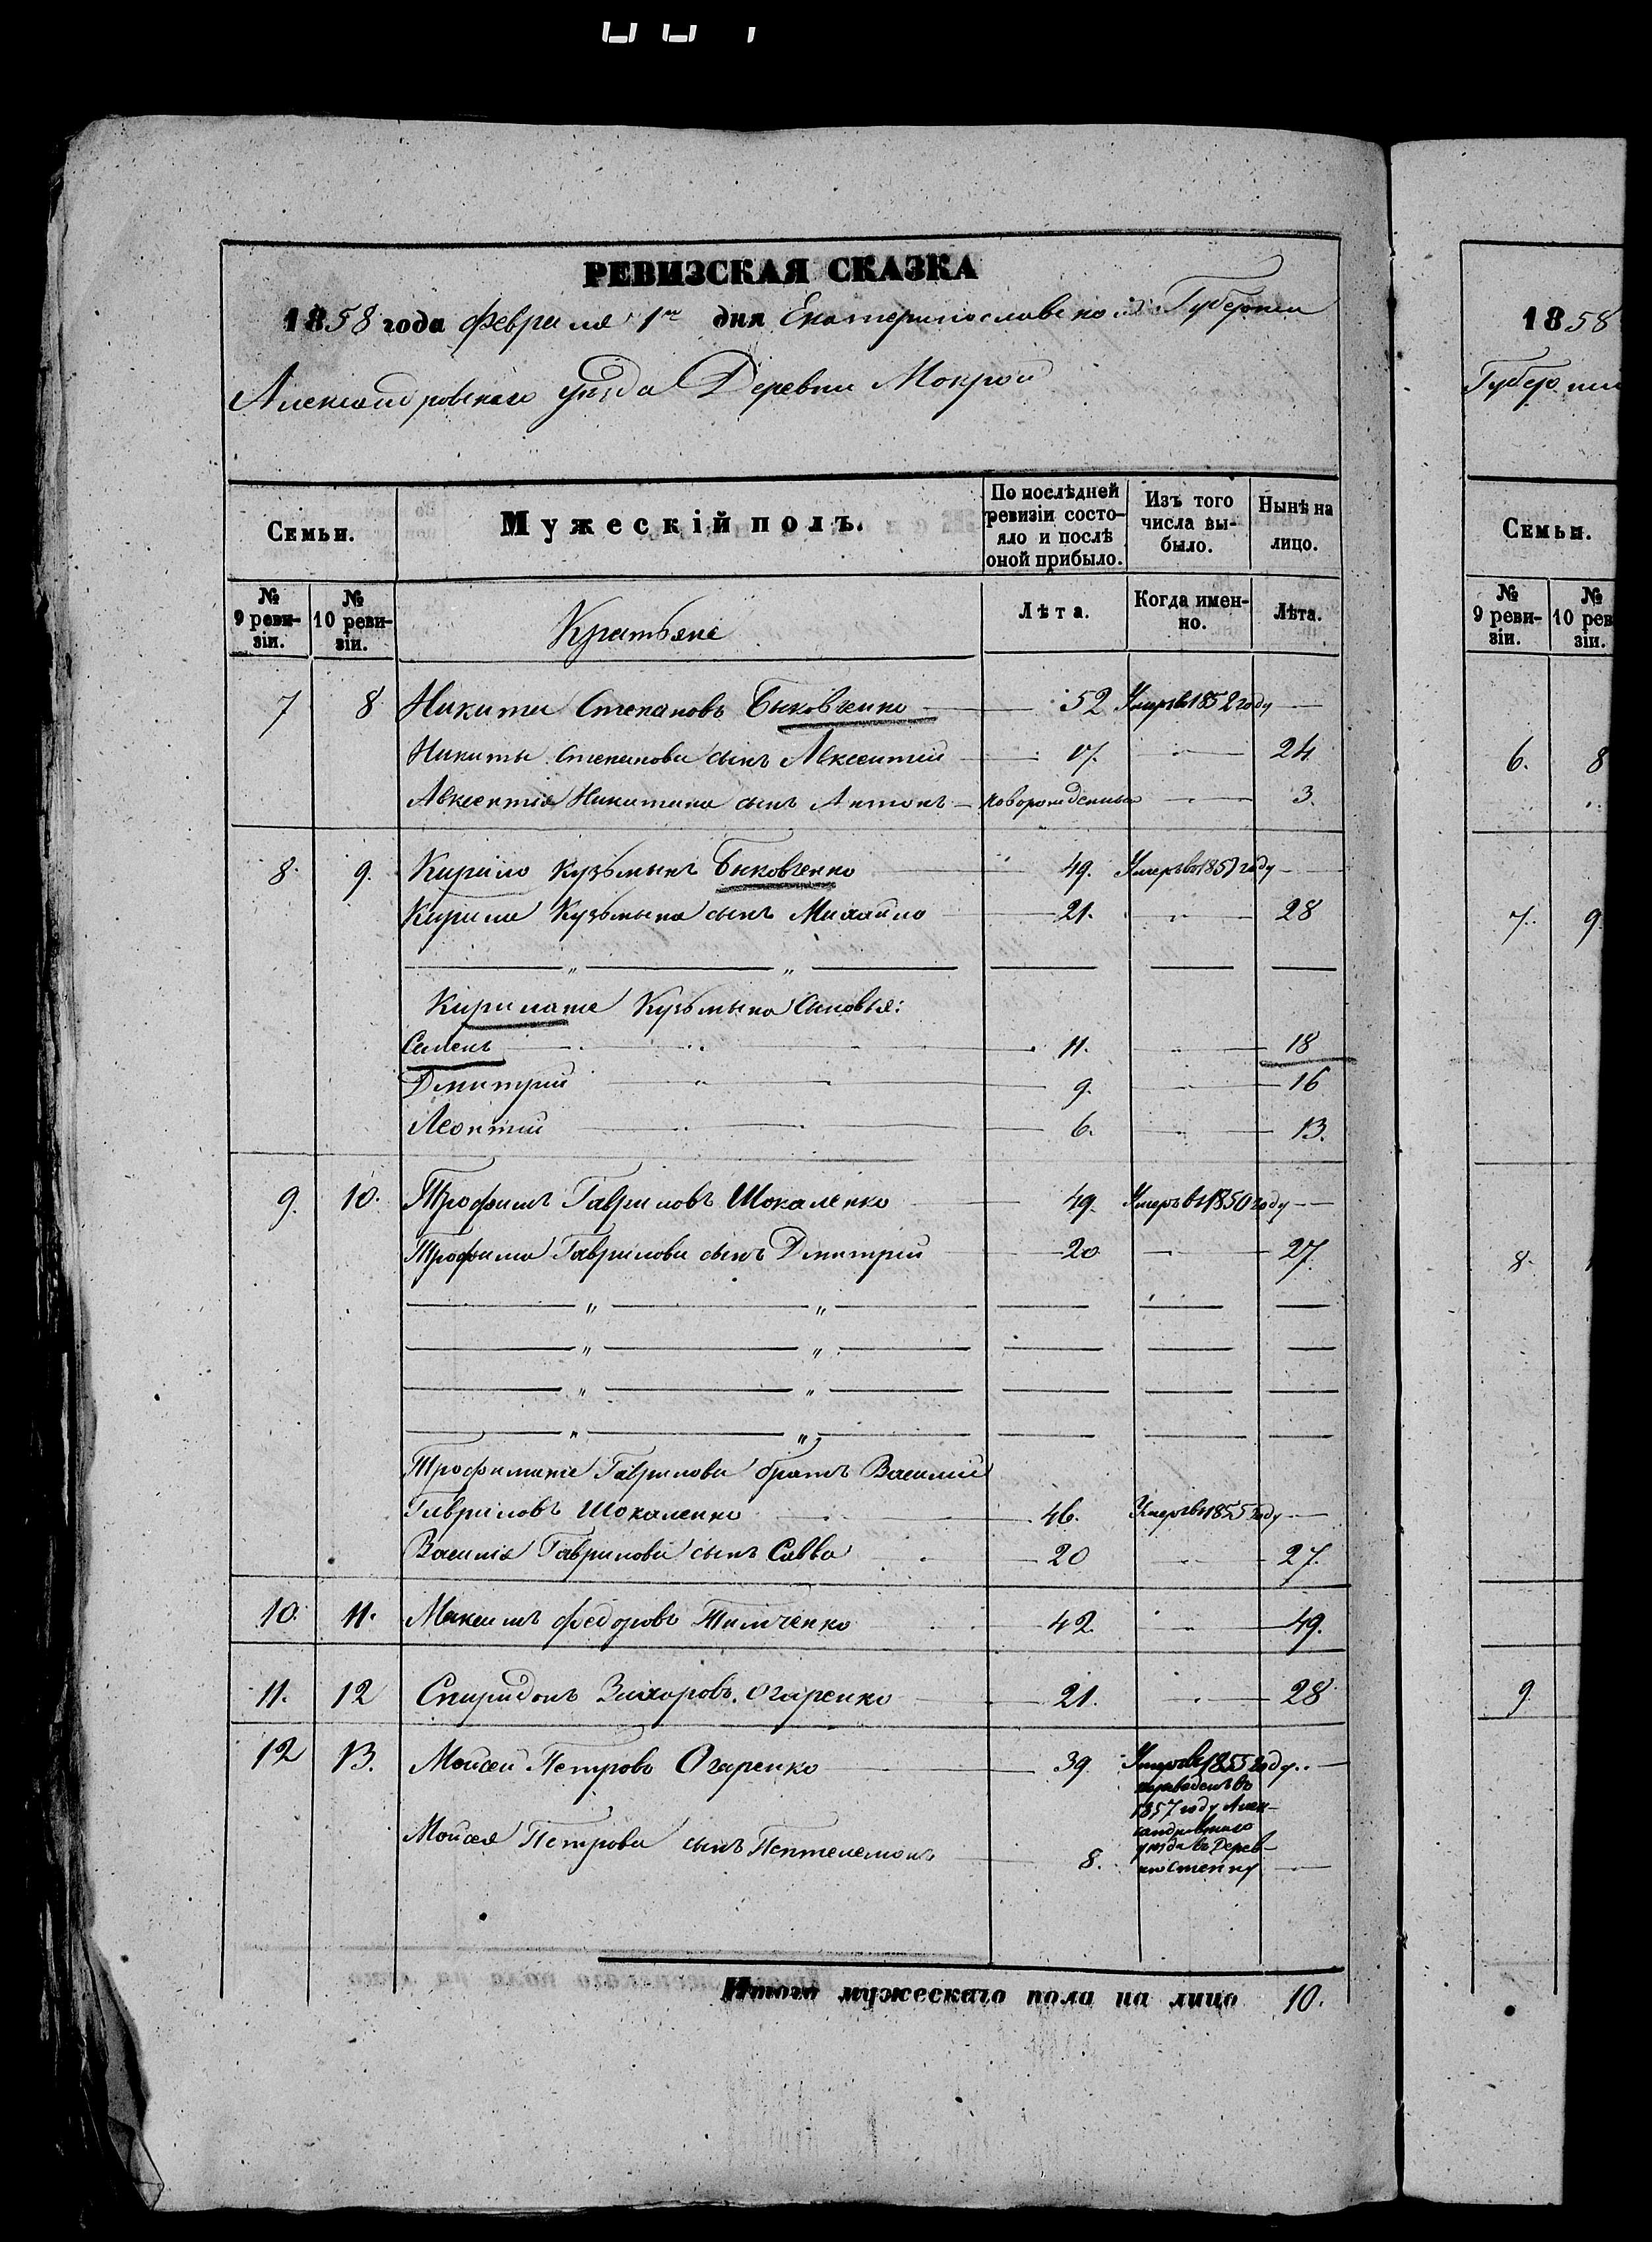 РЕВИЗСКАЯ СКАЗКА
1858 года февраля 1го дня Екатеринославской Губернии
Александровскаго уезда Деревни Мокрой
Семьи.
Мужескій полъ.
По послѣдней ревизіи состо-
яло и послѣ
оной прибыло.
Изъ того
числа вы-
было.
Нынѣ на
лицо.
№
9 реви-
зіи.
№
10 реви-
зіи.
Крестьяне
Лѣта.
Когда имен-
но.
Лѣта.
7 8 Никита Степановъ Быковченко 52 Умеръ въ 1852 году
Никиты Степанова сынъ Авксентий 17. " 24
Авксентия Никитина сынъ Антонъ новорожденный " 3.
8. 9. Кирило Кузьминъ Быковченко 49. Умеръ въ 1857 году
Кирила Кузьмина сынъ Михайло 21. " 28
" "
Кирилаже Кузьмина Сыновья:
Семенъ 11. " 18
Дмитрий " 9. " 16
Леонтий 6. " 13.
9. 10. Трофимъ Гавриловъ Шокаленко 49. Умеръ въ 1850 году
Трофима Гаврилова сынъ Дмитрий 20 " 27.
" "
" "
" "
" "
Трофимаже Гаврилова братъ Василий
Гавриловъ Шокаленко 46. Умеръ въ 1855 году
Василия Гаврилова сынъ Савва 20 " 27.
10. 11. Максимъ Федоровъ Тимченко 42. " 49.
11. 12 Спиридонъ Захаровъ Огаренко 21. " 28
12 13. Мойсей Петровъ Огаренко 39 Умеръ въ 1855 году
переведенъ въ
1857 году Алек-
сандровскаго
уезда въ Дерев-
ню Степну
Мойсея Петрова сынъ Пентелемонъ 8.
Итого мужескаго пола на лицо 10.
1858
Губернии
Семьи.
№
9 реви-
зіи.
№
10 рев
зіи.
6. 8
7. 9
8.
9